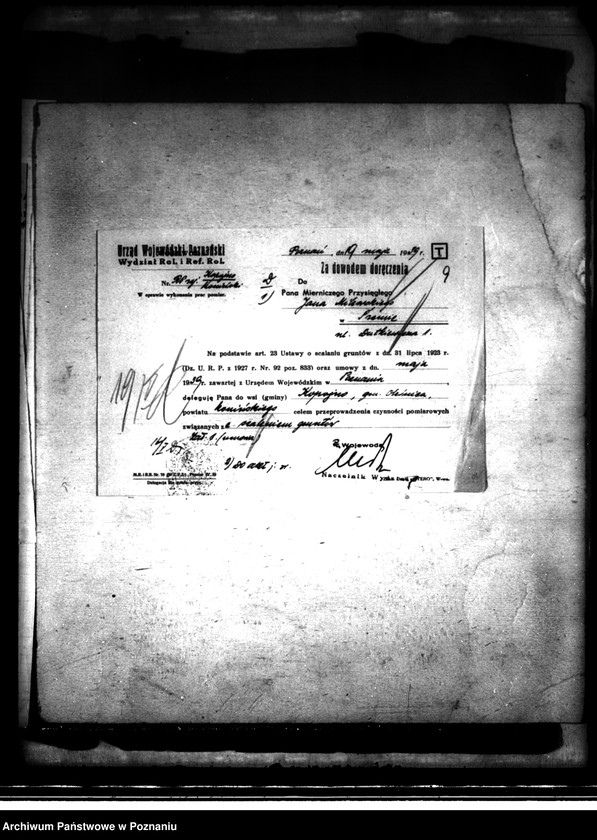 Urząd Wojewódzki Poznański
Wydział Rol. i Ref. Rol.
Nr. Kopojno
Koniński
W sprawie wykonania prac pomiar.
Poznań, dn. 19 maja 1939 r. T
Za dowodem doręczenia
9
Do
1)
Pana Mierniczego Przysięgłego
Jana
w Śremie
ul. 1.
Na podstawie art. 23 Ustawy o scalaniu gruntów z dn. 31 lipca 1923 r.
(Dz. U. R. P. z 1927 r. Nr. 92 poz. 833) oraz umowy z dn. maja
1939 r. zawartej z Urzędem Wojewódzkim w Poznaniu,
deleguję Pana do wsi (gminy) Kopojno, gm. Oleśnica,
powiatu konińskiego celem przeprowadzenia czynności pomiarowych
związanych z scaleniem gruntów
Zał. 1. (umowa)
2)
Z. Wojewodę
Naczelnik Wydziału
Archiwum Państwowe w Poznaniu